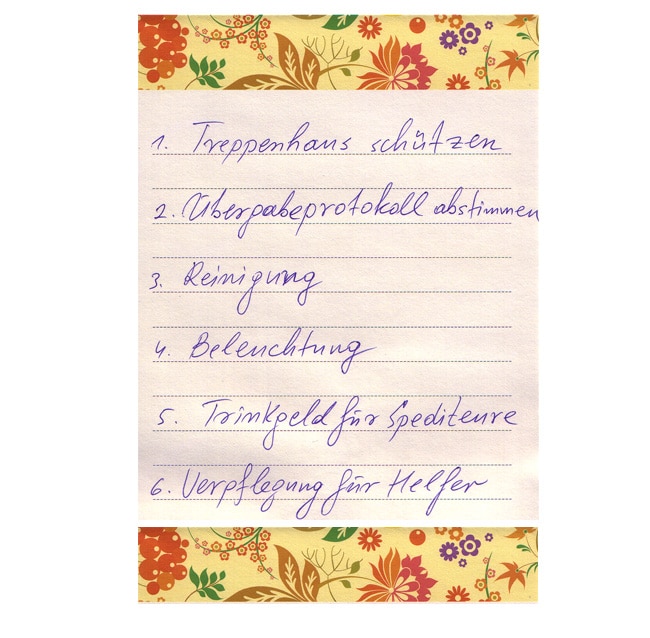 1. Treppenhaus schützen
2. Übergabeprotokoll abstimmen
3. Reinigung
4. Beleuchtung
5. Trinkgeld für Spediteure
6. Verpflegung für Helfer